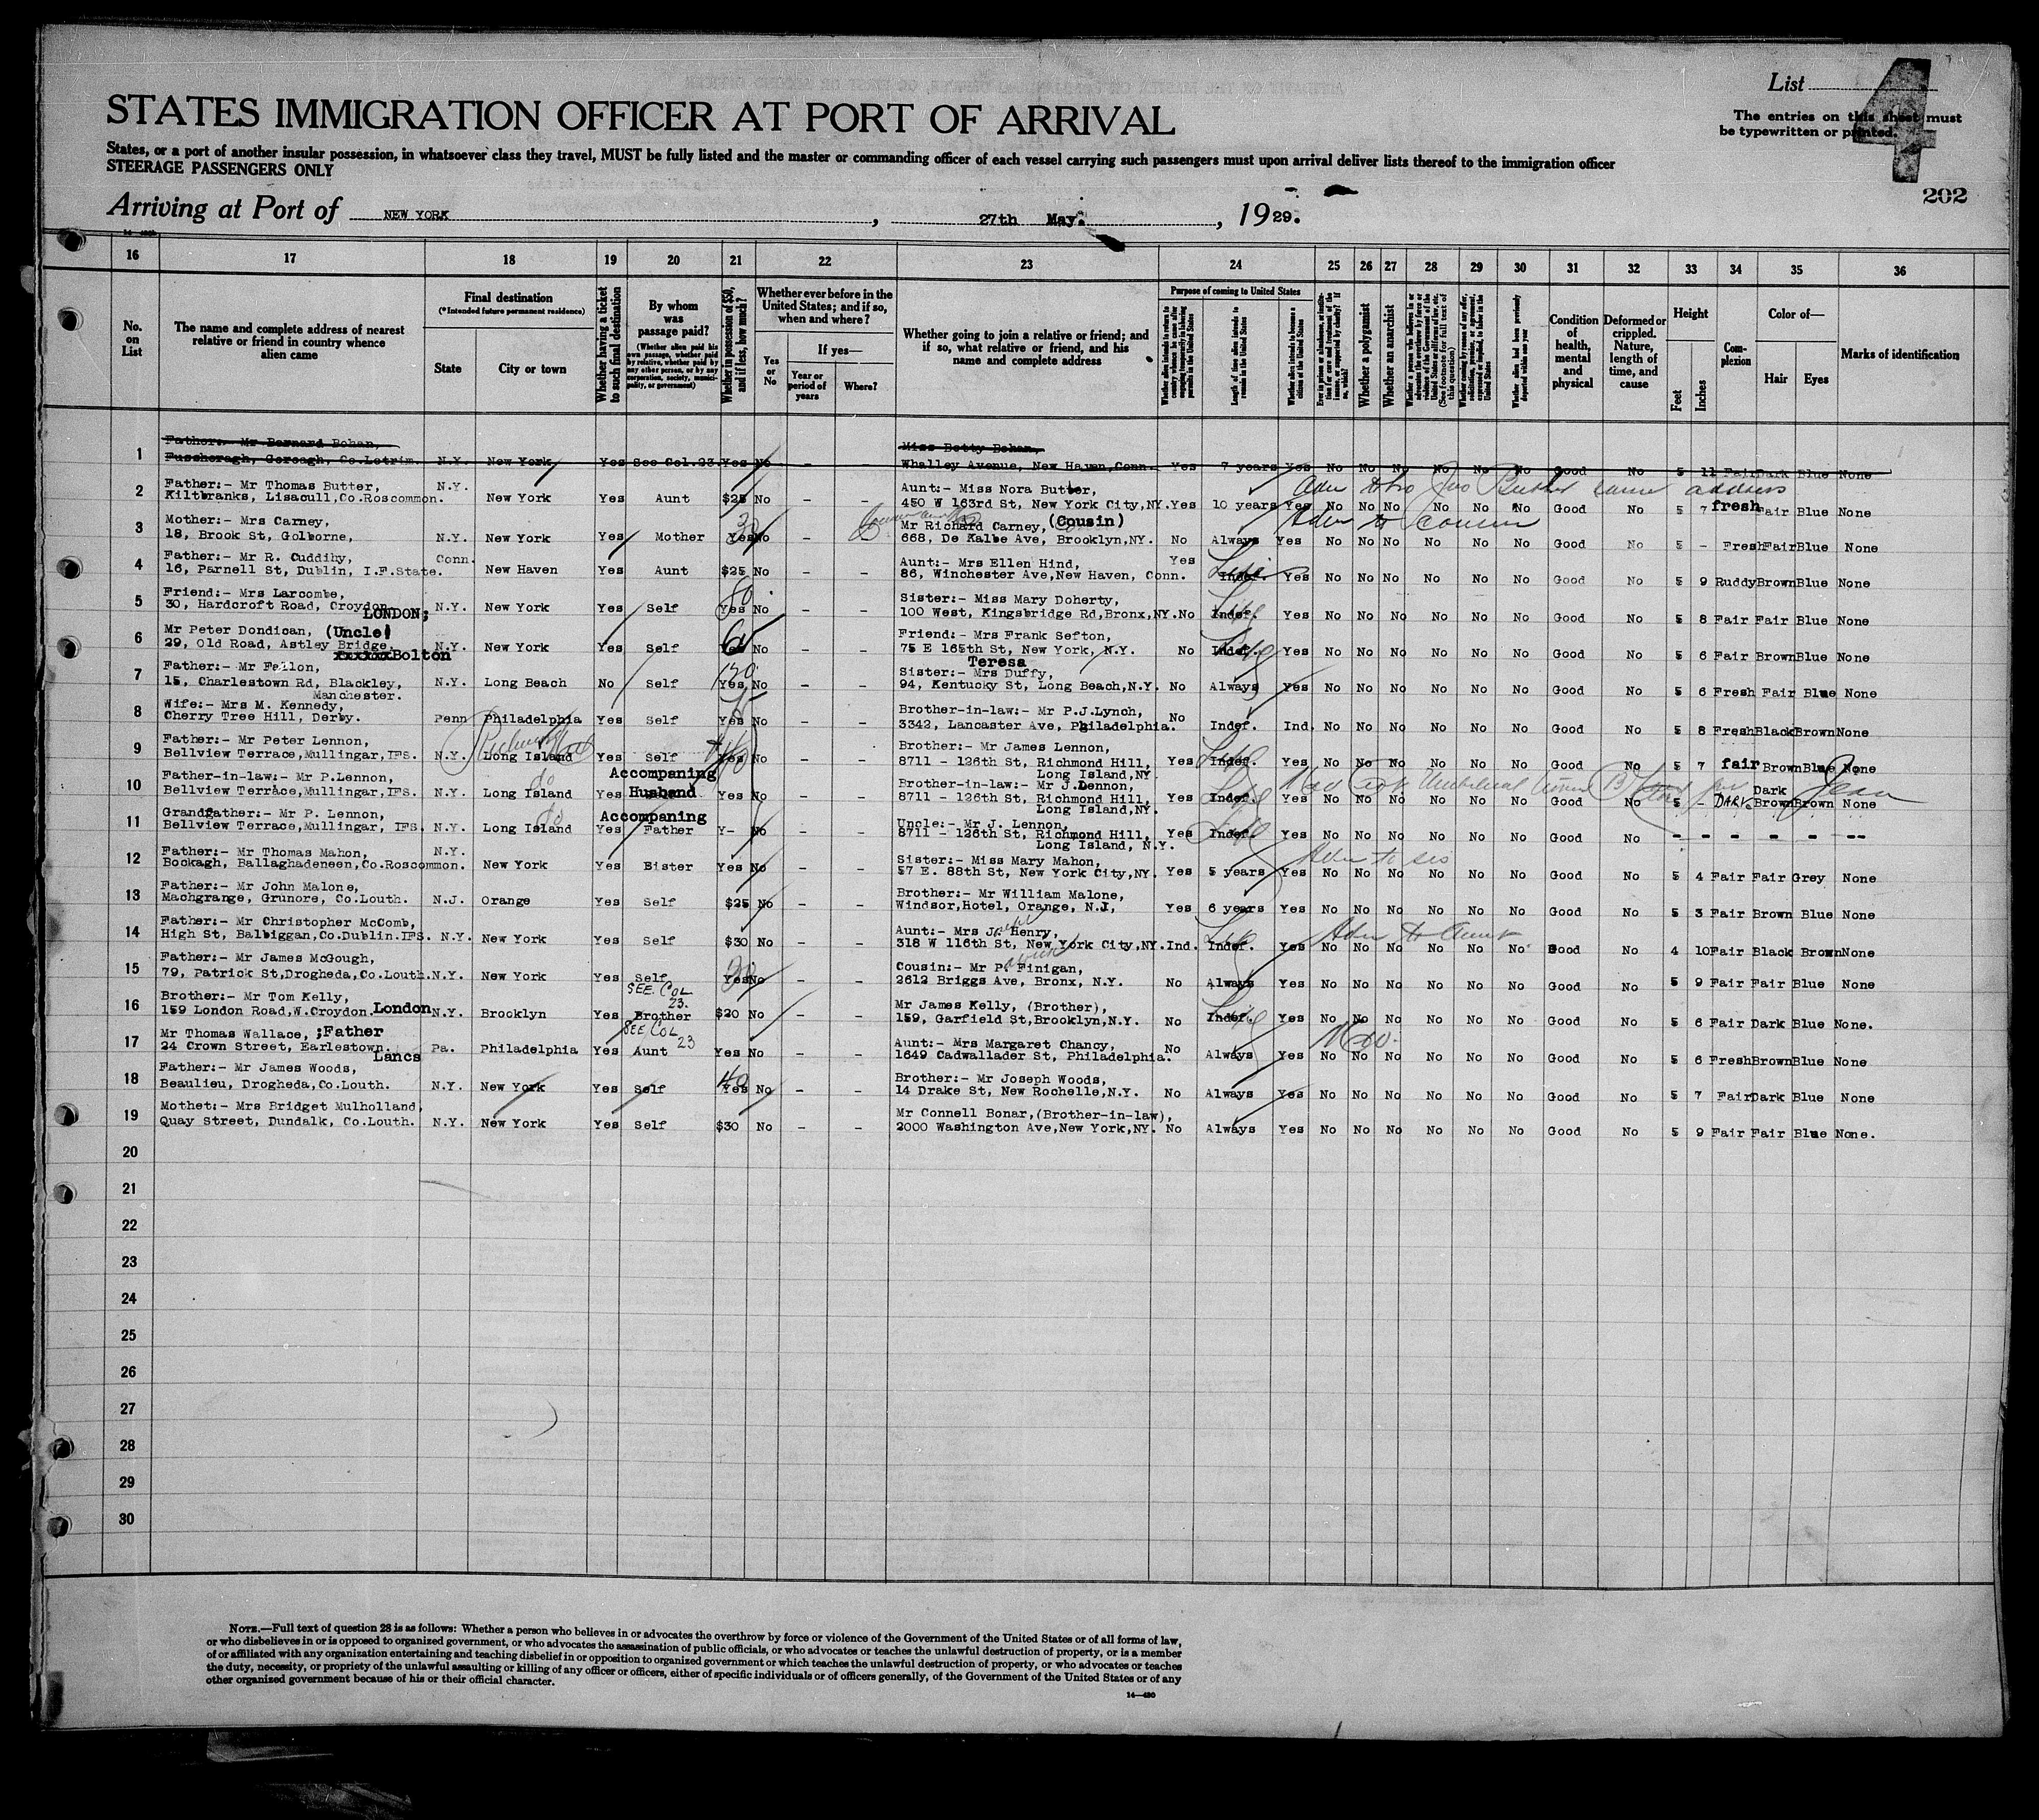 List 4
The entries on this sheet must
be typewritten or printed.
202
STATES IMMIGRATION OFFICER AT PORT OF ARRIVAL
States, or a port of another insular possession, in whatsoever class they travel, MUST be fully listed and the master or commanding officer of each vessel carrying such passengers must upon arrival deliver lists thereof to the immigration officer
STEERAGE PASSENGERS ONLY
Arriving at Port of NEW YORK, 27th May. , 1929.
16 17 18 19 20 21 22 23 24 25 26 27 28 29 30 31 32 33 34 35 36
No. on List
The name and complete address of nearest relative or friend in country whence alien came
Final destination
(*Intended future permanent residence)
State
City or town
Whether having a ticket to such final destination
By whom was passage paid?
(Whether alien paid his own passage, whether paid by relative, whether paid by any other person, or by any corporation, society, municipality, or government)
Whether in possession of $50, and if less, how much?
Whether ever before in the United States; and if so, when and where?
Yes or No
If yes—
Year or period of years
Where?
Whether going to join a relative or friend; and if so, what relative or friend, and his name and complete address
Purpose of coming to United States
Whether alien intends to return to country whence he came after engaging temporarily in laboring pursuits in the United States
Length of time alien intends to remain in the United States
Whether alien intends to become a citizen of the United States
Whether a polygamist
Whether an anarchist
Whether alien had been previously deported within one year
Condition of health, mental and physical
Deformed or crippled. Nature, length of time, and cause
Height
Feet
Inches
Complexion
Color of—
Hair
Eyes
Marks of identification
1 Father:- Mr Bernard Bohan, Miss Betty Bohan,
N.Y. New York Yes See Col.23. Yes No - - Whalley Avenue, New Haven, Conn. Yes 7 years Yes No No No No No No Good No 5 11 Fair Dark Blue None
2 Father:- Mr Thomas Butter, N.Y. Aunt:- Miss Nora Butter,
Kiltbranks, Lisacull, Co.Roscommon. New York Yes Aunt $25 No - - 450 W 163rd St, New York City, NY. Yes 10 years Yes No No No No No No Good No 5 7 fresh Fair Blue None
3 Mother:- Mrs Carney, Mr Richard Carney, (Cousin)
18, Brook St, Golborne, N.Y. New York Yes Mother Yes No - 668, De Kalbe Ave, Brooklyn, NY. No Always Yes No No No No No No Good No 5 - Fresh Fair Blue None
Adm to cousin
4 Father:- Mr R. Cuddihy, Conn. Aunt:- Mrs Ellen Hind, Yes
16, Parnell St, Dublin, I.F.State. New Haven Yes Aunt $25 No - - 86, Winchester Ave, New Haven, Conn. Indef. Yes No No No No No No Good No 5 9 Ruddy Brown Blue None
5 Friend:- Mrs Larcombe, 80 Sister:- Miss Mary Doherty,
30, Hardcroft Road, Croydon N.Y. New York Yes Self Yes No - - 100 West, Kingsbridge Rd, Bronx, NY. No Indef. Yes No No No No No No Good No 5 8 Fair Fair Blue None
LONDON;
6 Mr Peter Dondican, (Uncle) Friend:- Mrs Frank Sefton,
29, Old Road, Astley Bridge, N.Y. New York Yes Self No - - 75 E 165th St, New York, N.Y. No Indef. Yes No No No No No No Good No 5 6 Fair Brown Blue None
xxxxxx Bolton Teresa
7 Father:- Mr Fallon, 120 Sister:- Mrs Duffy,
15, Charlestown Rd, Blackley, N.Y. Long Beach No Self Yes No - - 94, Kentucky St, Long Beach, N.Y. No Always Yes No No No No No No Good No 5 6 Fresh Fair Blue None
Manchester.
8 Wife:- Mrs M. Kennedy, Brother-in-law:- Mr P.J.Lynch, No
Cherry Tree Hill, Derby. Penn Philadelphia Yes Self Yes No - - 3342, Lancaster Ave, Philadelphia. Indef. Ind. No No No No No No Good No 5 8 Fresh Black Brown None
9 Father:- Mr Peter Lennon, Brother:- Mr James Lennon,
Bellview Terrace, Mullingar, IFS. N.Y. Long Island Yes Self Yes No - - 8711 - 126th St, Richmond Hill, Yes Indef. Yes No No No No No No Good No 5 7 fair Brown Blue None
Long Island, NY.
10 Father-in-law:- Mr P.Lennon, do Accompaning Brother-in-law:- Mr J.Lennon, Dark
Bellview Terrace, Mullingar, IFS. N.Y. Long Island Yes Husband Yes No - - 8711 - 126th St, Richmond Hill, Yes Indef. Yes No No No No No No Good No 5 - DARK Brown Brown None
Long Island, NY.
11 Grandfather:- Mr P. Lennon, do Accompaning Uncle:- Mr J. Lennon,
Bellview Terrace, Mullingar, IFS. N.Y. Long Island Yes Father Y- No - - 8711 - 126th St, Richmond Hill, Yes Indef. Yes No No No No No No Good No - - - - - --
Long Island, N.Y.
12 Father:- Mr Thomas Mahon, N.Y. Sister:- Miss Mary Mahon, Adm to sis
Bockagh, Ballaghadeneen, Co.Roscommon. New York Yes Sister Yes No - - 57 E. 88th St, New York City, NY. Yes 5 years Yes No No No No No No Good No 5 4 Fair Fair Grey None
13 Father:- Mr John Malone, Brother:- Mr William Malone,
Machgrange, Grunore, Co.Louth. N.J. Orange Yes Self $25 No - - Windsor, Hotel, Orange, N.J, Yes 6 years Yes No No No No No No Good No 5 3 Fair Brown Blue None
14 Father:- Mr Christopher McComb, Aunt:- Mrs J. Henry, Adm to Aunt
High St, Balbiggan, Co.Dublin.IFS. N.Y. New York Yes Self $30 No - - 318 W 116th St, New York City, NY. Ind. Indef. Yes No No No No No No Good No 4 10 Fair Black Brown None
15 Father:- Mr James McGough, Cousin:- Mr P. Finigan,
79, Patrick St, Drogheda, Co.Louth. N.Y. New York Yes Self Yes No - - 2612 Briggs Ave, Bronx, N.Y. No Always Yes No No No No No No Good No 5 9 Fair Fair Blue None
16 Brother:- Mr Tom Kelly, SEE COL 23. Mr James Kelly, (Brother),
159 London Road, W.Croydon. London N.Y. Brooklyn Yes Brother $20 No - - 159, Garfield St, Brooklyn, N.Y. No Indef. Yes No No No No No No Good No 5 6 Fair Dark Blue None.
17 Mr Thomas Wallace, ;Father SEE COL 23 Aunt:- Mrs Margaret Chancy, No
24 Crown Street, Earlestown. Pa. Philadelphia Yes Aunt Yes No - - 1649 Cadwallader St, Philadelphia. Always Yes No No No No No No Good No 5 6 Fresh Brown Blue None
Lancs
18 Father:- Mr James Woods, 40 Brother:- Mr Joseph Woods,
Beaulieu, Drogheda, Co.Louth. N.Y. New York Yes Self Yes No - - 14 Drake St, New Rochelle, N.Y. No Always Yes No No No No No No Good No 5 7 Fair Dark Blue None
19 Mothet:- Mrs Bridget Mulholland, Mr Connell Bonar, (Brother-in-law),
Quay Street, Dundalk, Co.Louth. N.Y. New York Yes Self $30 No - - 2000 Washington Ave, New York, NY. No Always Yes No No No No No No Good No 5 9 Fair Fair Blue None.
20
21
22
23
24
25
26
27
28
29
30
NOTE.—Full text of question 28 is as follows: Whether a person who believes in or advocates the overthrow by force or violence of the Government of the United States or of all forms of law,
or who disbelieves in or is opposed to organized government, or who advocates the assassination of public officials, or who advocates or teaches the unlawful destruction of property, or is a member
of or affiliated with any organization entertaining and teaching disbelief in or opposition to organized government or which teaches the unlawful destruction of property, or who advocates or teaches
the duty, necessity, or propriety of the unlawful assaulting or killing of any officer or officers, either of specific individuals or of officers generally, of the Government of the United States or of any
other organized government because of his or their official character.
14—430